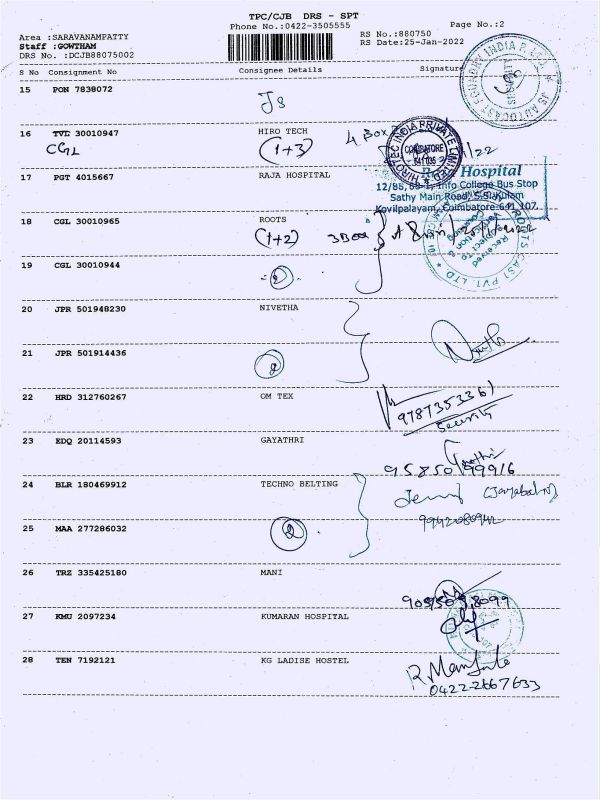 TPC/CJB DRS - SPT
Phone No.:0422-3505555
Page No.:2
Area :SARAVANAMPATTY
Staff :GOWTHAM
DRS No. :DCJB88075002
RS No.:880750
RS Date:25-Jan-2022
S No Consignment No Consignee Details Signature
15 PON 7838072
JS
16 TVL 30010947 HIRO TECH
CGL (1+3) 4 Box
HIROTEC INDIA PRIVATE LIMITED
COIMBATORE
641 035
17 PGT 4015667 RAJA HOSPITAL
Hospital
Info College Bus Stop
Sathy Main Road, S.S.Kulam
Kovilpalayam, Coimbatore-641 107.
18 CGL 30010965 ROOTS
(1+2) 3 Box
19 CGL 30010944
2
20 JPR 501948230 NIVETHA
21 JPR 501914436
2
22 HRD 312760267 OM TEX
9787353361
Security
23 EDQ 20114593 GAYATHRI
9585099916
24 BLR 180469912 TECHNO BELTING
25 MAA 277286032
2
9942080942
26 TRZ 335425180 MANI
27 KMU 2097234 KUMARAN HOSPITAL
28 TEN 7192121 KG LADISE HOSTEL
0422-2667633